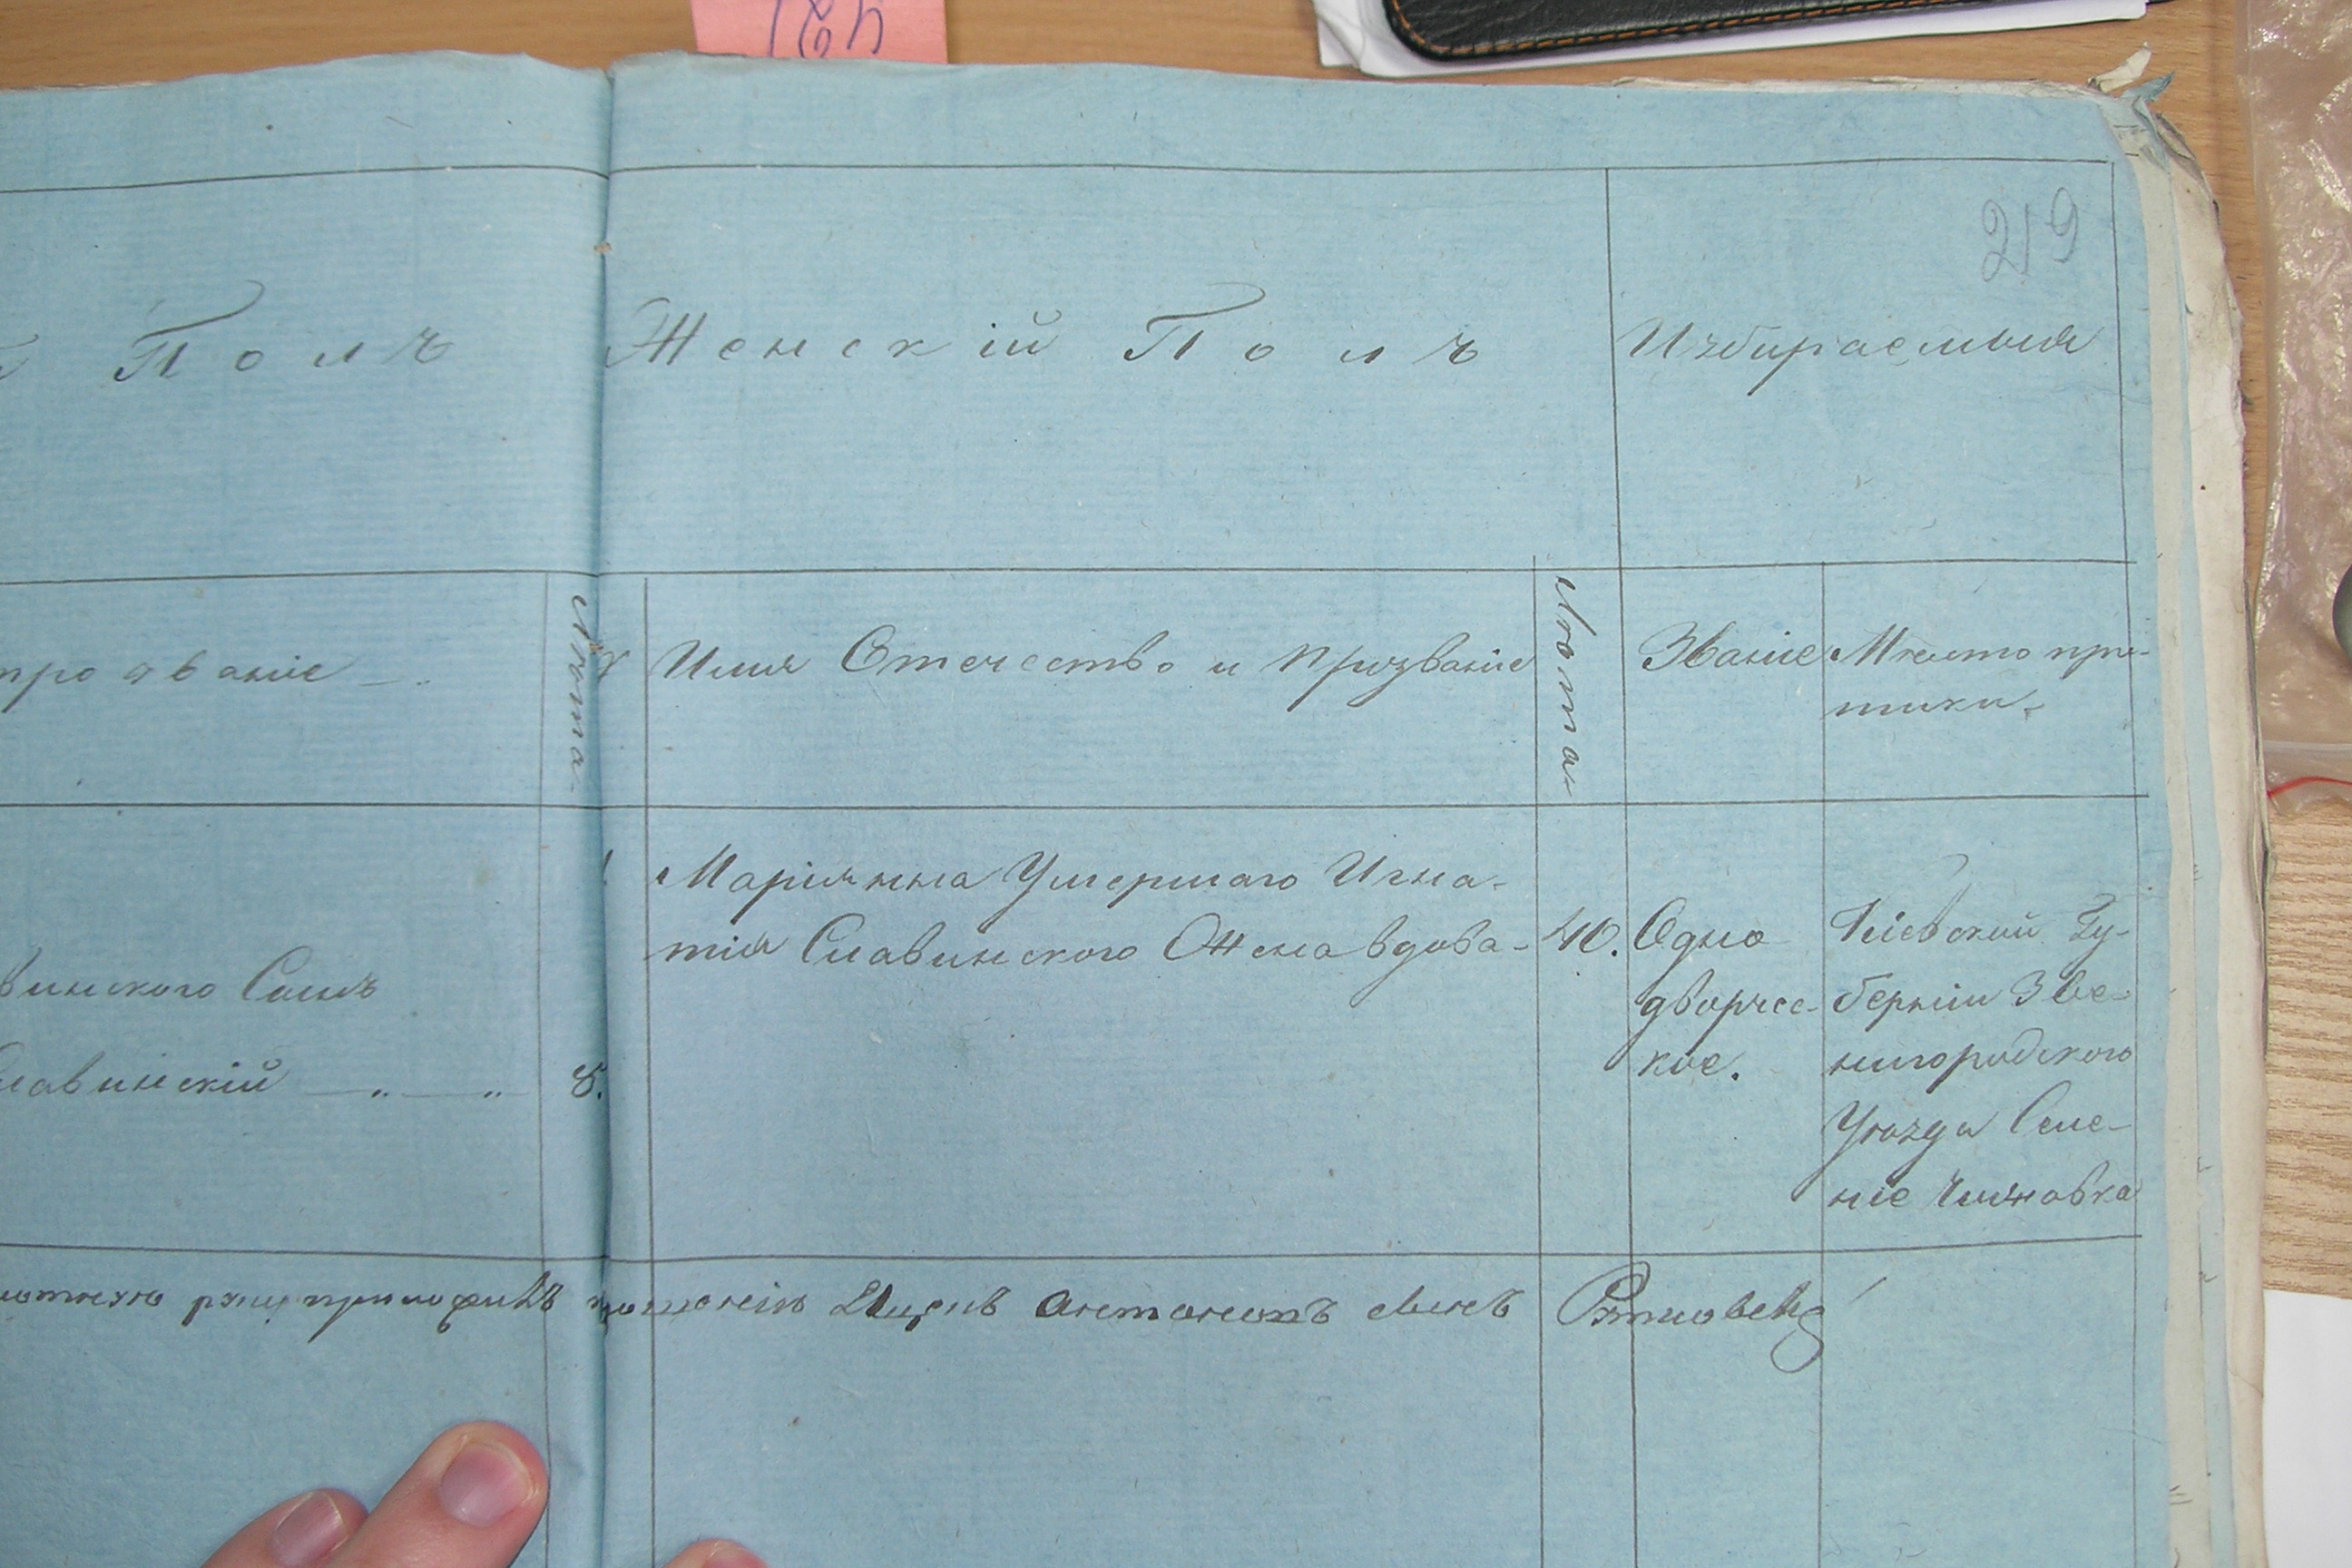 219
Полъ Женскій Полъ Избираемыя
прозваніе Лѣта № Имя Отечество и Прозваніе Лѣта Званіе Мѣсто при-
писки
1. Маріянна Умершаго Игна-
тія Славинского Жена вдова 40. Одно
дворчес-
кое.
Кіевской Гу-
берніи Зве-
нигородского
Уѣзда Селе-
ніе Чижовка
винского Сынъ
лавинскій 8.